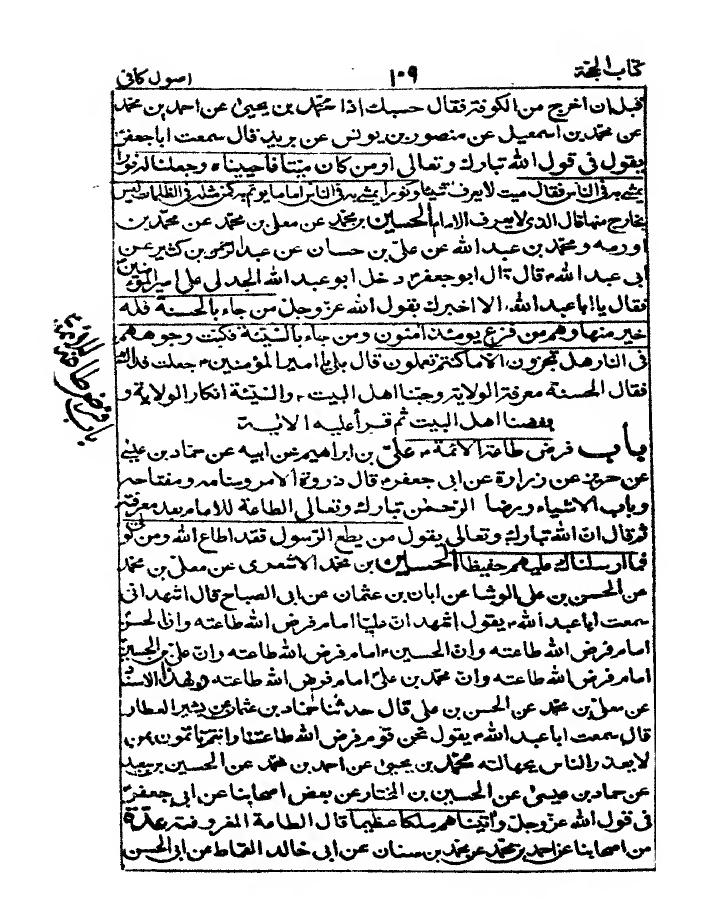 كتاب الحجة
١٠٩
اصول كافى
قبل ان اخرج من الكوفة فقال حسبك اذا محمد بن يحيىٰ عن احمد بن محمد
عن محمد بن اسمعيل عن منصور بن يونس عن بريد قال سمعت اباجعفرؑ
يقول فى قول الله تبارك وتعالى اومن كان ميتا فاحييناه وجعلنا له نورا
يمشى به فى الناس فقال ميت لا يعرف شيئا ونورا يمشى به فى الناس اماما يؤتم به كمن مثله فى الظلمات ليس
بخارج منها قال الذى لا يعرف الامام الحسين بن محمد عن معلى بن محمد عن محمد بن
اورمه ومحمد بن عبد الله عن على بن حسان عن عبد الرحمٰن بن كثير عن
ابى عبد اللهؑ قال قال ابو جعفرؑ دخل ابو عبد الله الجدلى على امير المؤمنينؑ
فقال يا ابا عبد الله الا اخبرك بقول الله عز وجل من جاء بالحسنة فله
خير منها وهم من فزع يومئذ امنون ومن جاء بالسيئة فكبت وجوههم
فى النار هل تجزون الا ما كنتم تعملون قال بلى يا امير المؤمنينؑ جعلت فداك
فقال الحسنة معرفة الولاية وحبنا اهل البيتؑ والسيئة انكار الولاية و
بغضنا اهل البيت ثم قرأ عليه الاية
باب فرض طاعة الائمةؑ على بن ابراهيم عن ابيه عن حماد بن عيسىٰ
عن حريز عن زرارة عن ابى جعفرؑ قال ذروة الامر وسنامه ومفتاحه
وباب الاشياء ورضا الرحمٰن تبارك وتعالى الطاعة للامام بعد معرفته
ثم قال ان الله تبارك وتعالى يقول من يطع الرسول فقد اطاع الله ومن تولى
فما ارسلناك عليهم حفيظا الحسين بن محمد الاشعرى عن معلى بن محمد
عن الحسن بن على الوشا عن ابان بن عثمان عن ابى الصباح قال اشهد انى
سمعت ابا عبد اللهؑ يقول اشهد ان عليا امام فرض الله طاعته وان الحسن
امام فرض الله طاعته وان الحسينؑ امام فرض الله طاعته وان على بن الحسين
امام فرض الله طاعته وان محمد بن على امام فرض الله طاعته وبهذا الاسناد
عن معلى بن محمد عن الحسن بن على قال حدثنا حماد بن عثمان عن بشير العطار
قال سمعت ابا عبد اللهؑ يقول نحن قوم فرض الله طاعتنا وانتم تاتمون بمن
لا يعذر الناس بجهالته محمد بن يحيىٰ عن احمد بن محمد عن الحسين بن سعيد
عن حماد بن عيسىٰ عن الحسين بن المختار عن بعض اصحابنا عن ابى جعفرؑ
فى قول الله عز وجل واتيناهم ملكا عظيما قال الطاعة المفروضة عدة
من اصحابنا عن احمد بن محمد عن محمد بن سنان عن ابى خالد القماط عن ابى الحسن
باب فرض طاعة